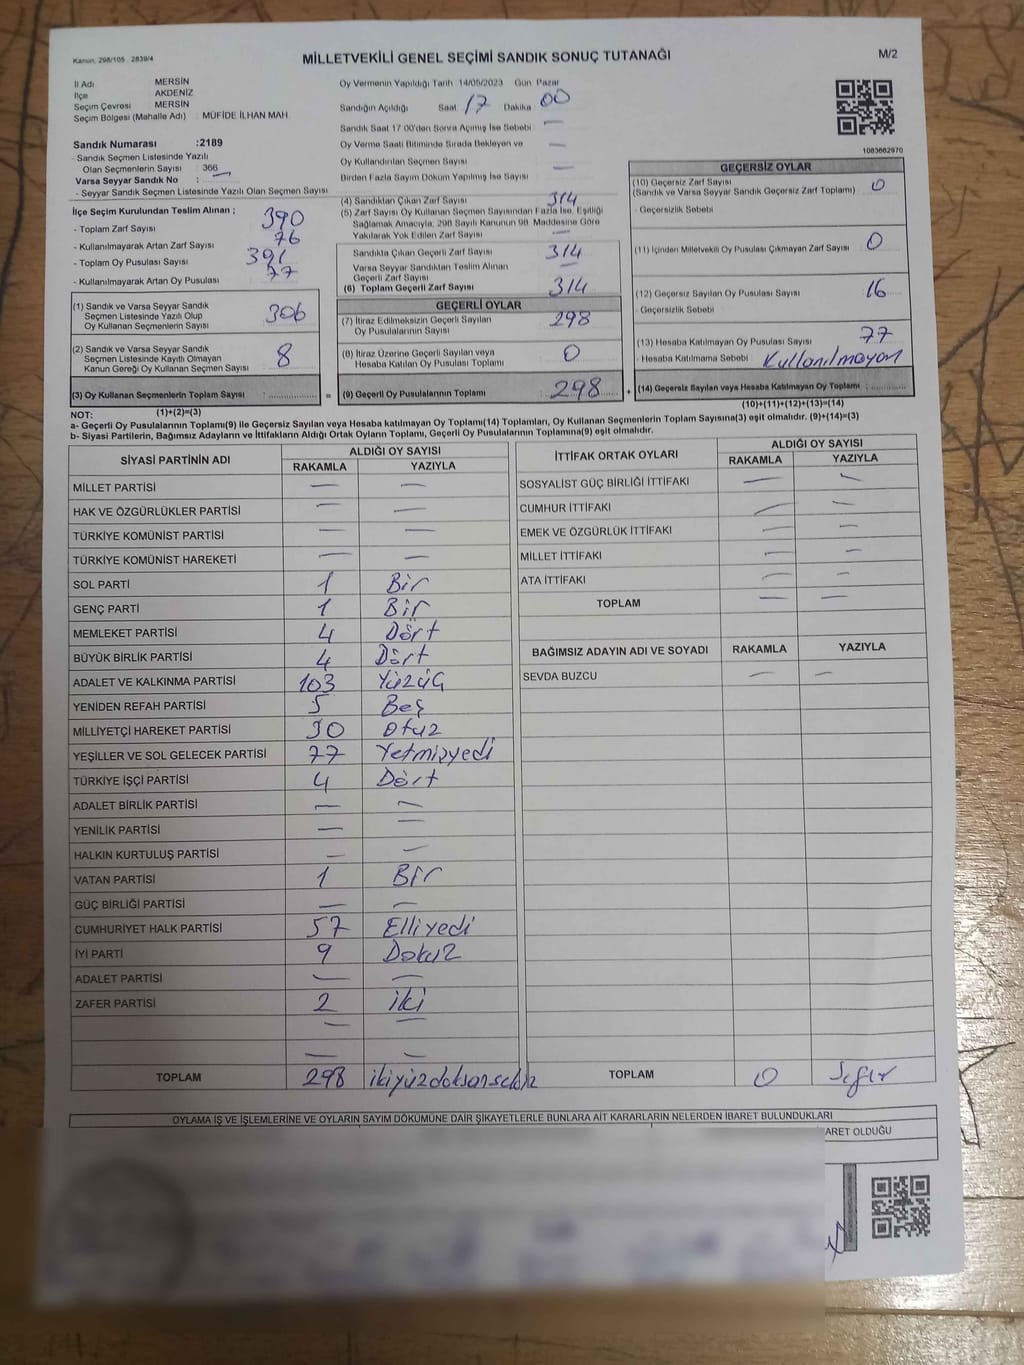 Kanun, 298/105 . 2839/4
MİLLETVEKİLİ GENEL SEÇİMİ SANDIK SONUÇ TUTANAĞI
M/2
İl Adı : MERSİN
İlçe : AKDENİZ
Seçim Çevresi : MERSİN
Seçim Bölgesi (Mahalle Adı) : MÜFİDE İLHAN MAH.
Sandık Numarası :2189
- Sandık Seçmen Listesinde Yazılı
Olan Seçmenlerin Sayısı 366
Varsa Seyyar Sandık No : —
- Seyyar Sandık Seçmen Listesinde Yazılı Olan Seçmen Sayısı
İlçe Seçim Kurulundan Teslim Alınan ;
- Toplam Zarf Sayısı 390
- Kullanılmayarak Artan Zarf Sayısı 76
- Toplam Oy Pusulası Sayısı 391
- Kullanılmayarak Artan Oy Pusulası 77
(1) Sandık ve Varsa Seyyar Sandık
Seçmen Listesinde Yazılı Olup
Oy Kullanan Seçmenlerin Sayısı 306
(2) Sandık ve Varsa Seyyar Sandık
Seçmen Listesinde Kayıtlı Olmayan
Kanun Gereği Oy Kullanan Seçmen Sayısı 8
(3) Oy Kullanan Seçmenlerin Toplam Sayısı : ..............
(1)+(2)=(3)
Oy Vermenin Yapıldığı Tarih 14/05/2023 Gün Pazar
Sandığın Açıldığı Saat 17 Dakika 00
Sandık Saat 17:00'den Sonra Açılmış İse Sebebi —
Oy Verme Saati Bitiminde Sırada Bekleyen ve —
Oy Kullandırılan Seçmen Sayısı
Birden Fazla Sayım Döküm Yapılmış İse Sayısı —
(4) Sandıktan Çıkan Zarf Sayısı 314
(5) Zarf Sayısı Oy Kullanan Seçmen Sayısından Fazla İse, Eşitliği
Sağlamak Amacıyla, 298 Sayılı Kanunun 98. Maddesine Göre
Yakılarak Yok Edilen Zarf Sayısı —
Sandıkta Çıkan Geçerli Zarf Sayısı 314
Varsa Seyyar Sandıktan Teslim Alınan
Geçerli Zarf Sayısı —
(6) Toplam Geçerli Zarf Sayısı 314
GEÇERLİ OYLAR
(7) İtiraz Edilmeksizin Geçerli Sayılan
Oy Pusulalarının Sayısı 298
(8) İtiraz Üzerine Geçerli Sayılan veya
Hesaba Katılan Oy Pusulası Toplamı 0
(9) Geçerli Oy Pusulalarının Toplamı 298
1083662970
GEÇERSİZ OYLAR
(10) Geçersiz Zarf Sayısı 0
(Sandık ve Varsa Seyyar Sandık Geçersiz Zarf Toplamı)
- Geçersizlik Sebebi
(11) İçinden Milletvekili Oy Pusulası Çıkmayan Zarf Sayısı 0
(12) Geçersiz Sayılan Oy Pusulası Sayısı 16
- Geçersizlik Sebebi
(13) Hesaba Katılmayan Oy Pusulası Sayısı 77
- Hesaba Katılmama Sebebi : Kullanılmayan
(14) Geçersiz Sayılan veya Hesaba Katılmayan Oy Toplamı : ..............
(10)+(11)+(12)+(13)=(14)
NOT:
a- Geçerli Oy Pusulalarının Toplamı(9) ile Geçersiz Sayılan veya Hesaba Katılmayan Oy Toplamı(14) Toplamları, Oy Kullanan Seçmenlerin Toplam Sayısına(3) eşit olmalıdır. (9)+(14)=(3)
b- Siyasi Partilerin, Bağımsız Adayların ve İttifakların Aldığı Ortak Oyların Toplamı, Geçerli Oy Pusulalarının Toplamına(9) eşit olmalıdır.
SİYASİ PARTİNİN ADI ALDIĞI OY SAYISI
RAKAMLA YAZIYLA
MİLLET PARTİSİ — —
HAK VE ÖZGÜRLÜKLER PARTİSİ — —
TÜRKİYE KOMÜNİST PARTİSİ — —
TÜRKİYE KOMÜNİST HAREKETİ — —
SOL PARTİ 1 Bir
GENÇ PARTİ 1 Bir
MEMLEKET PARTİSİ 4 Dört
BÜYÜK BİRLİK PARTİSİ 4 Dört
ADALET VE KALKINMA PARTİSİ 103 Yüzüç
YENİDEN REFAH PARTİSİ 5 Beş
MİLLİYETÇİ HAREKET PARTİSİ 30 Otuz
YEŞİLLER VE SOL GELECEK PARTİSİ 77 Yetmişyedi
TÜRKİYE İŞÇİ PARTİSİ 4 Dört
ADALET BİRLİK PARTİSİ — —
YENİLİK PARTİSİ — —
HALKIN KURTULUŞ PARTİSİ — —
VATAN PARTİSİ 1 Bir
GÜÇ BİRLİĞİ PARTİSİ — —
CUMHURİYET HALK PARTİSİ 57 Elliyedi
İYİ PARTİ 9 Dokuz
ADALET PARTİSİ — —
ZAFER PARTİSİ 2 iki
— —
— —
TOPLAM 298 ikiyüzdoksansekiz
İTTİFAK ORTAK OYLARI ALDIĞI OY SAYISI
RAKAMLA YAZIYLA
SOSYALİST GÜÇ BİRLİĞİ İTTİFAKI — —
CUMHUR İTTİFAKI — —
EMEK VE ÖZGÜRLÜK İTTİFAKI — —
MİLLET İTTİFAKI — —
ATA İTTİFAKI — —
TOPLAM — —
BAĞIMSIZ ADAYIN ADI VE SOYADI RAKAMLA YAZIYLA
SEVDA BUZCU — —
TOPLAM 0 Sıfır
OYLAMA İŞ VE İŞLEMLERİNE VE OYLARIN SAYIM DÖKÜMÜNE DAİR ŞİKAYETLERLE BUNLARA AİT KARARLARIN NELERDEN İBARET BULUNDUKLARI
BARET OLDUĞU